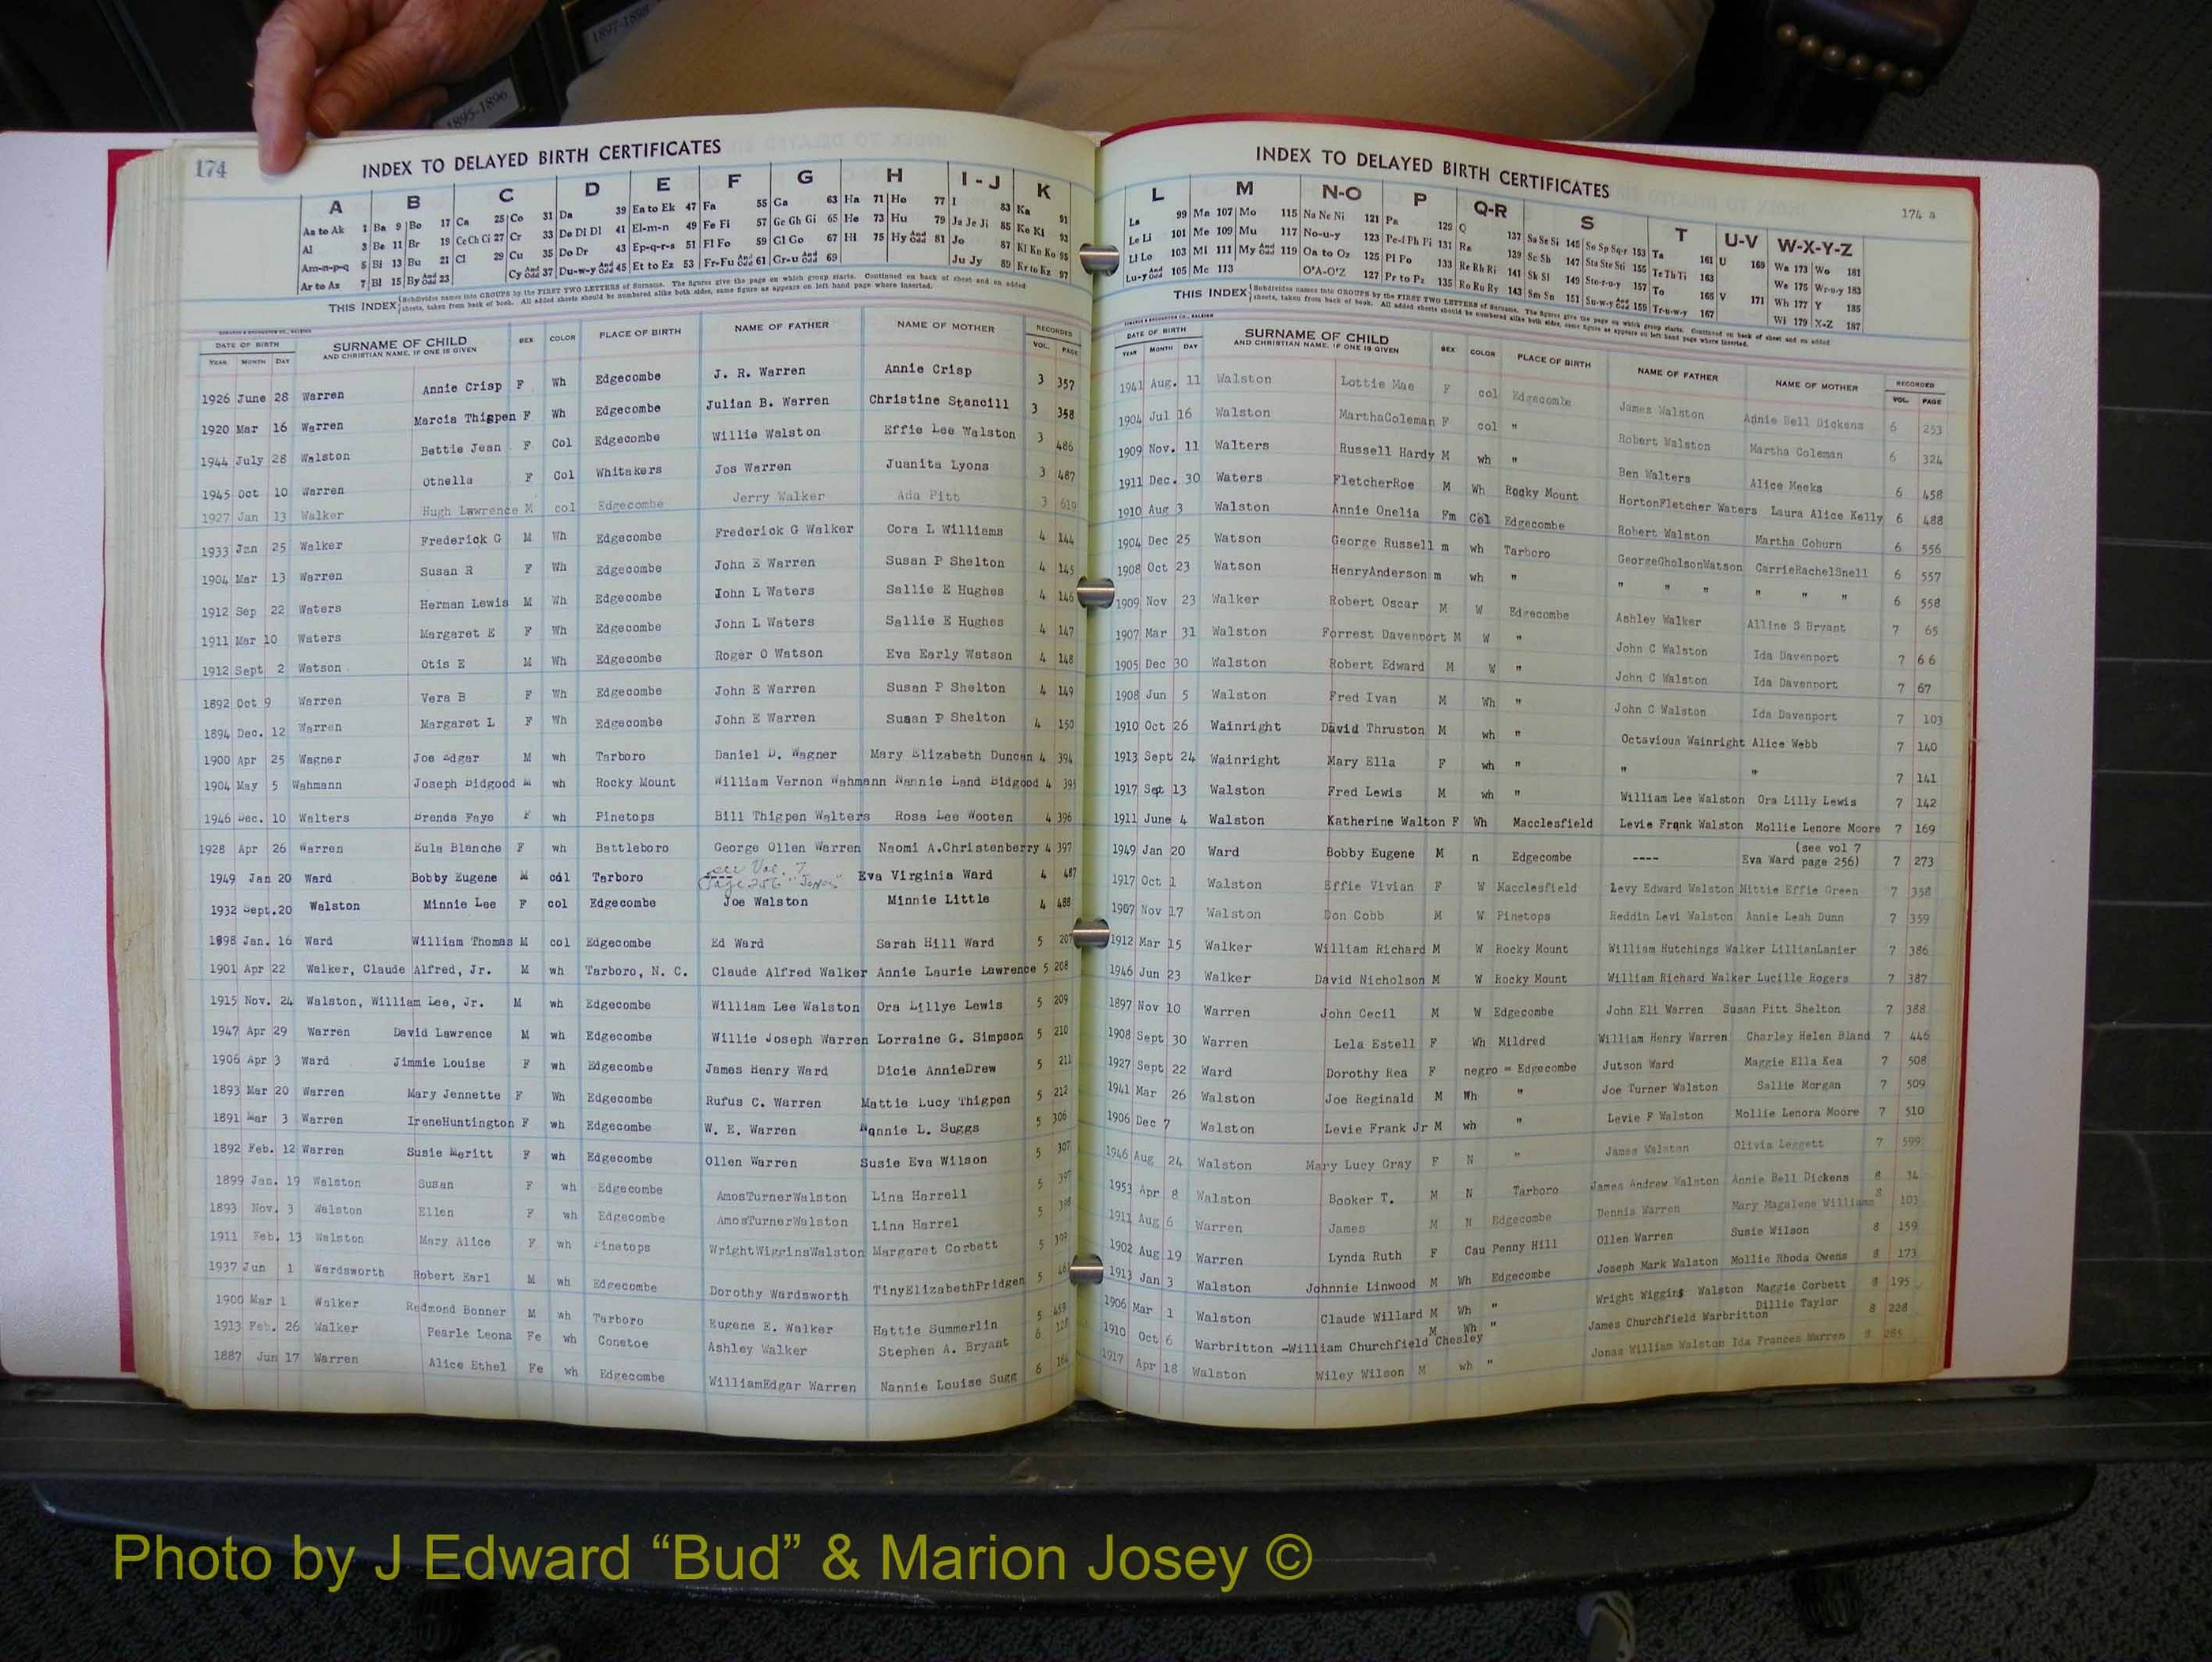 1897-1898
1895-1896
174
INDEX TO DELAYED BIRTH CERTIFICATES
A B C D E F G H I - J K
Aa to Ak 1 Ba 9 Bo 17 Ca 25 Co 31 Da 39 Ea to Ek 47 Fa 55 Ga 63 Ha 71 Ho 77 I 83 Ka 91
Al 3 Be 11 Br 19 Ce Ch Ci 27 Cr 33 De Di Dl 41 El-m-n 49 Fe Fi 57 Ge Gh Gi 65 He 73 Hu 79 Ja Je Ji 85 Ke Ki 93
Am-n-p-q 5 Bi 13 Bu 21 Cl 29 Cu 35 Do Dr 43 Ep-q-r-s 51 Fl Fo 59 Gl Go 67 Hi 75 Hy And Odd 81 Jo 87 Kl Kn Ko 95
Ar to Az 7 Bl 15 By And Odd 23 Cy And Odd 37 Du-w-y And Odd 45 Et to Ez 53 Fr-Fu And Odd 61 Gr-u And Odd 69 Ju Jy 89 Kr to Kz 97
THIS INDEX Subdivides names into GROUPS by the FIRST TWO LETTERS of Surname. The figures give the page on which group starts. Continued on back of sheet and on added
sheets, taken from back of book. All added sheets should be numbered alike both sides, same figure as appears on left hand page where inserted.
DATE OF BIRTH SURNAME OF CHILD SEX COLOR PLACE OF BIRTH NAME OF FATHER NAME OF MOTHER RECORDED
YEAR MONTH DAY AND CHRISTIAN NAME, IF ONE IS GIVEN VOL. PAGE
1926 June 28 Warren Annie Crisp F Wh Edgecombe J. R. Warren Annie Crisp 3 357
1920 Mar 16 Warren Marcia Thigpen F Wh Edgecombe Julian B. Warren Christine Stancill 3 358
1944 July 28 Walston Bettie Jean F Col Edgecombe Willie Walston Effie Lee Walston 3 486
1945 Oct 10 Warren Othella F Col Whitakers Jos Warren Juanita Lyons 3 487
1927 Jan 13 Walker Hugh Lawrence M col Edgecombe Jerry Walker Ada Pitt 3 619
1933 Jan 25 Walker Frederick G M Wh Edgecombe Frederick G Walker Cora L Williams 4 144
1904 Mar 13 Warren Susan R F Wh Edgecombe John E Warren Susan P Shelton 4 145
1912 Sep 22 Waters Herman Lewis M Wh Edgecombe John L Waters Sallie E Hughes 4 146
1911 Mar 10 Waters Margaret E F Wh Edgecombe John L Waters Sallie E Hughes 4 147
1912 Sept 2 Watson Otis E M Wh Edgecombe Roger O Watson Eva Early Watson 4 148
1892 Oct 9 Warren Vera B F Wh Edgecombe John E Warren Susan P Shelton 4 149
1894 Dec. 12 Warren Margaret L F Wh Edgecombe John E Warren Susan P Shelton 4 150
1900 Apr 25 Wagner Joe Edgar M wh Tarboro Daniel D. Wagner Mary Elizabeth Duncan 4 394
1904 May 5 Wahmann Joseph Bidgood M wh Rocky Mount William Vernon Wahmann Nannie Land Bidgood 4 395
1946 Dec. 10 Walters Brenda Faye F wh Pinetops Bill Thigpen Walters Rosa Lee Wooten 4 396
1928 Apr 26 Warren Eula Blanche F wh Battleboro George Ollen Warren Naomi A.Christenberry 4 397
1949 Jan 20 Ward Bobby Eugene M col Tarboro ---- see Vol. 7 Page 256 "Jones" Eva Virginia Ward 4 487
1932 Sept.20 Walston Minnie Lee F col Edgecombe Joe Walston Minnie Little 4 488
1898 Jan. 16 Ward William Thomas M col Edgecombe Ed Ward Sarah Hill Ward 5 207
1901 Apr 22 Walker, Claude Alfred, Jr. M wh Tarboro, N. C. Claude Alfred Walker Annie Laurie Lawrence 5 208
1915 Nov. 24 Walston, William Lee, Jr. M wh Edgecombe William Lee Walston Ora Lillye Lewis 5 209
1947 Apr 29 Warren David Lawrence M wh Edgecombe Willie Joseph Warren Lorraine G. Simpson 5 210
1906 Apr 3 Ward Jimmie Louise F wh Edgecombe James Henry Ward Dicie AnnieDrew 5 211
1893 Mar 20 Warren Mary Jennette F Wh Edgecombe Rufus C. Warren Mattie Lucy Thigpen 5 212
1891 Mar 3 Warren IreneHuntington F wh Edgecombe W. E. Warren Nannie L. Suggs 5 306
1892 Feb. 12 Warren Susie Meritt F wh Edgecombe Ollen Warren Susie Eva Wilson 5 307
1899 Jan. 19 Walston Susan F wh Edgecombe AmosTurnerWalston Lina Harrell 5 397
1893 Nov. 3 Walston Ellen F wh Edgecombe AmosTurnerWalston Lina Harrel 5 398
1911 Feb. 13 Walston Mary Alice F wh Pinetops WrightWigginsWalston Margaret Corbett 5 399
1937 Jun 1 Wardsworth Robert Earl M wh Edgecombe Dorothy Wardsworth TinyElizabethPridgen 5
1900 Mar 1 Walker Redmond Bonner M wh Tarboro Eugene E. Walker Hattie Summerlin 5 459
1913 Feb. 26 Walker Pearle Leona Fe wh Conetoe Ashley Walker Stephen A. Bryant 6 128
1887 Jun 17 Warren Alice Ethel Fe wh Edgecombe WilliamEdgar Warren Nannie Louise Sugg 6 164
INDEX TO DELAYED BIRTH CERTIFICATES
174 a
L M N-O P Q-R S T U-V W-X-Y-Z
La 99 Ma 107 Mo 115 Na Ne Ni 121 Pa 129 Q 137 Sa Se Si 145 So Sp Sq-r 153 Ta 161 U 169 Wa 173 Wo 181
Le Li 101 Me 109 Mu 117 No-u-y 123 Pe-f Ph Pi 131 Ra 139 Sc Sh 147 Sta Ste Sti 155 Te Th Ti 163 We 175 Wr-u-y 183
Ll Lo 103 Mi 111 My And Odd 119 Oa to Oz 125 Pl Po 133 Re Rh Ri 141 Sk Sl 149 Sto-r-u-y 157 To 165 V 171 Wh 177 Y 185
Lu-y And Odd 105 Mc 113 O'A-O'Z 127 Pr to Pz 135 Ro Ru Ry 143 Sm Sn 151 Su-w-y And Odd 159 Tr-u-w-y 167 Wi 179 X-Z 187
THIS INDEX Subdivides names into GROUPS by the FIRST TWO LETTERS of Surname. The figures give the page on which group starts. Continued on back of sheet and on added
sheets, taken from back of book. All added sheets should be numbered alike both sides, same figure as appears on left hand page where inserted.
DATE OF BIRTH SURNAME OF CHILD SEX COLOR PLACE OF BIRTH NAME OF FATHER NAME OF MOTHER RECORDED
YEAR MONTH DAY AND CHRISTIAN NAME, IF ONE IS GIVEN VOL. PAGE
1941 Aug. 11 Walston Lottie Mae F col Edgecombe James Walston Annie Bell Dickens 6 253
1904 Jul 16 Walston MarthaColeman F col " Robert Walston Martha Coleman 6 324
1909 Nov. 11 Walters Russell Hardy M wh " Ben Walters Alice Meeks 6 458
1911 Dec. 30 Waters FletcherRoe M Wh Rocky Mount HortonFletcher Waters Laura Alice Kelly 6 488
1910 Aug 3 Walston Annie Onelia Fm Col Edgecombe Robert Walston Martha Coburn 6 556
1904 Dec 25 Watson George Russell m wh Tarboro GeorgeGholsonWatson CarrieRachelSnell 6 557
1908 Oct 23 Watson HenryAnderson m wh " " " " " " " 6 558
1909 Nov 23 Walker Robert Oscar M W Edgecombe Ashley Walker Alline S Bryant 7 65
1907 Mar 31 Walston Forrest Davenport M W " John C Walston Ida Davenport 7 66
1905 Dec 30 Walston Robert Edward M W " John C Walston Ida Davenport 7 67
1908 Jun 5 Walston Fred Ivan M Wh " John C Walston Ida Davenport 7 103
1910 Oct 26 Wainright David Thruston M wh " Octavious Wainright Alice Webb 7 140
1913 Sept 24 Wainright Mary Ella F wh " " " 7 141
1917 Sep 13 Walston Fred Lewis M wh " William Lee Walston Ora Lilly Lewis 7 142
1911 June 4 Walston Katherine Walton F Wh Macclesfield Levie Frank Walston Mollie Lenore Moore 7 169
1949 Jan 20 Ward Bobby Eugene M n Edgecombe ---- (see vol 7 Eva Ward page 256) 7 273
1917 Oct 1 Walston Effie Vivian F W Macclesfield Levy Edward Walston Mittie Effie Green 7 358
1907 Nov 17 Walston Don Cobb M W Pinetops Reddin Levi Walston Annie Leah Dunn 7 359
1912 Mar 15 Walker William Richard M W Rocky Mount William Hutchings Walker LillianLanier 7 386
1946 Jun 23 Walker David Nicholson M W Rocky Mount William Richard Walker Lucille Rogers 7 387
1897 Nov 10 Warren John Cecil M W Edgecombe John Eli Warren Susan Pitt Shelton 7 388
1908 Sept 30 Warren Lela Estell F Wh Mildred William Henry Warren Charley Helen Bland 7 446
1927 Sept 22 Ward Dorothy Rea F negro = Edgecombe Jutson Ward Maggie Ella Kea 7 508
1941 Mar 26 Walston Joe Reginald M Wh " Joe Turner Walston Sallie Morgan 7 509
1906 Dec 7 Walston Levie Frank Jr M wh " Levie F Walston Mollie Lenora Moore 7 510
1946 Aug 24 Walston Mary Lucy Gray F N " James Walston Olivia Leggett 7 599
1953 Apr 8 Walston Booker T. M N Tarboro James Andrew Walston Annie Bell Dickens 8 34
1911 Aug 6 Warren James M N Edgecombe Dennis Warren Mary Magalene Williams 8 103
1902 Aug 19 Warren Lynda Ruth F Cau Penny Hill Ollen Warren Susie Wilson 8 159
1913 Jan 3 Walston Johnnie Linwood M Wh Edgecombe Joseph Mark Walston Mollie Rhoda Owens 8 173
1906 Mar 1 Walston Claude Willard M Wh " Wright Wiggins Walston Maggie Corbett 8 195
1910 Oct 6 Warbritton -William Churchfield Chesley M Wh " James Churchfield Warbritton Dillie Taylor 8 228
1917 Apr 18 Walston Wiley Wilson M wh " Jonas William Walston Ida Frances Warren 8 285
Photo by J Edward “Bud” & Marion Josey ©